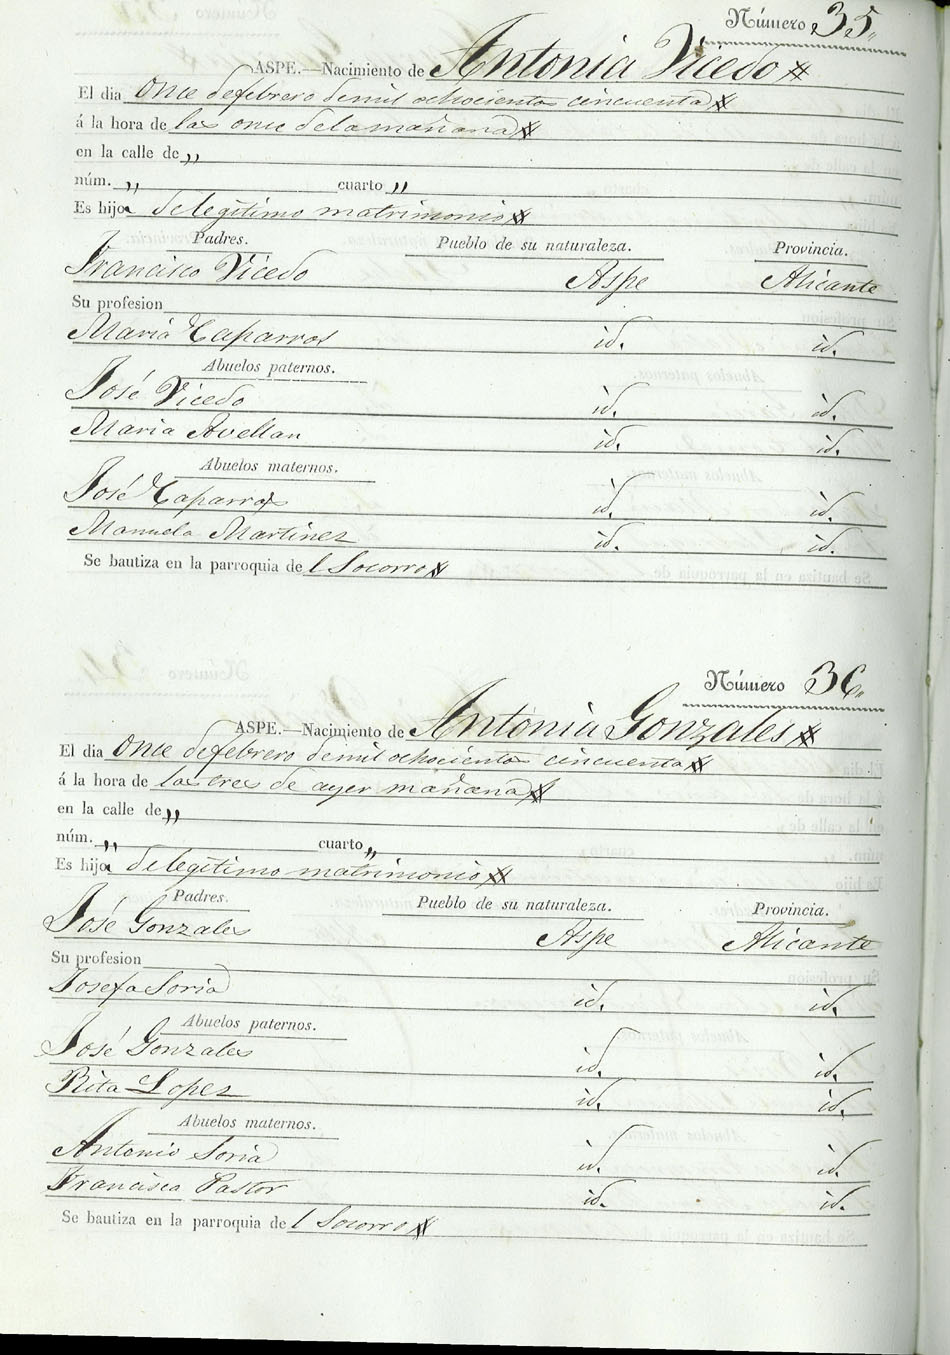 Número 35
ASPE.—Nacimiento de Antonia Vicedo
El dia once de febrero de mil ochocientos cincuenta
á la hora de las once de la mañana
en la calle de „
núm. „ cuarto „
Es hija de legítimo matrimonio
Padres. Pueblo de su naturaleza. Provincia.
Francisco Vicedo Aspe Alicante
Su profesion
Maria Caparros id. id.
Abuelos paternos.
José Vicedo id. id.
Maria Avellan id. id.
Abuelos maternos.
José Caparros id. id.
Manuela Martinez id. id.
Se bautiza en la parroquia del Socorro
Número 36
ASPE.—Nacimiento de Antonia Gonzales
El dia once de febrero de mil ochocientos cincuenta
á la hora de las tres de ayer mañana
en la calle de „
núm. „ cuarto „
Es hija de legítimo matrimonio
Padres. Pueblo de su naturaleza. Provincia.
José Gonzales Aspe Alicante
Su profesion
Josefa Soria id. id.
Abuelos paternos.
José Gonzales id. id.
Rita Lopez id. id.
Abuelos maternos.
Antonio Soria id. id.
Francisca Pastor id. id.
Se bautiza en la parroquia del Socorro